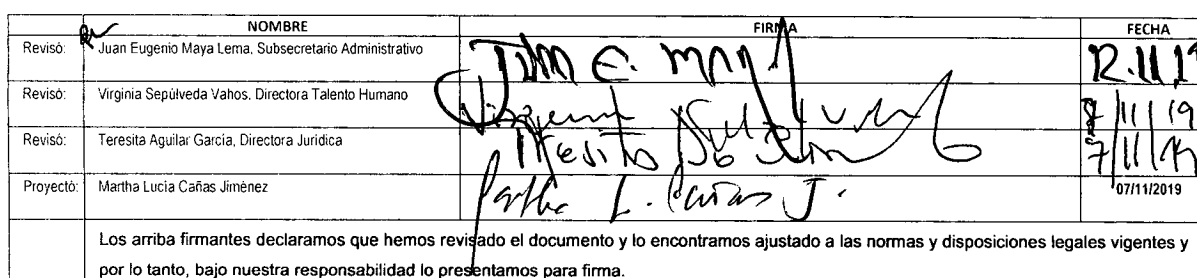 NOMBRE FIRMA FECHA
Revisó: Juan Eugenio Maya Lema, Subsecretario Administrativo Juan E. Maya 12.11.19
Revisó: Virginia Sepúlveda Vahos, Directora Talento Humano Virginia Sepulveda 7/11/19
Revisó: Teresita Aguilar García, Directora Jurídica Teresita 7/11/19
Proyectó: Martha Lucía Cañas Jiménez Martha L. Cañas J. 07/11/2019
Los arriba firmantes declaramos que hemos revisado el documento y lo encontramos ajustado a las normas y disposiciones legales vigentes y
por lo tanto, bajo nuestra responsabilidad lo presentamos para firma.